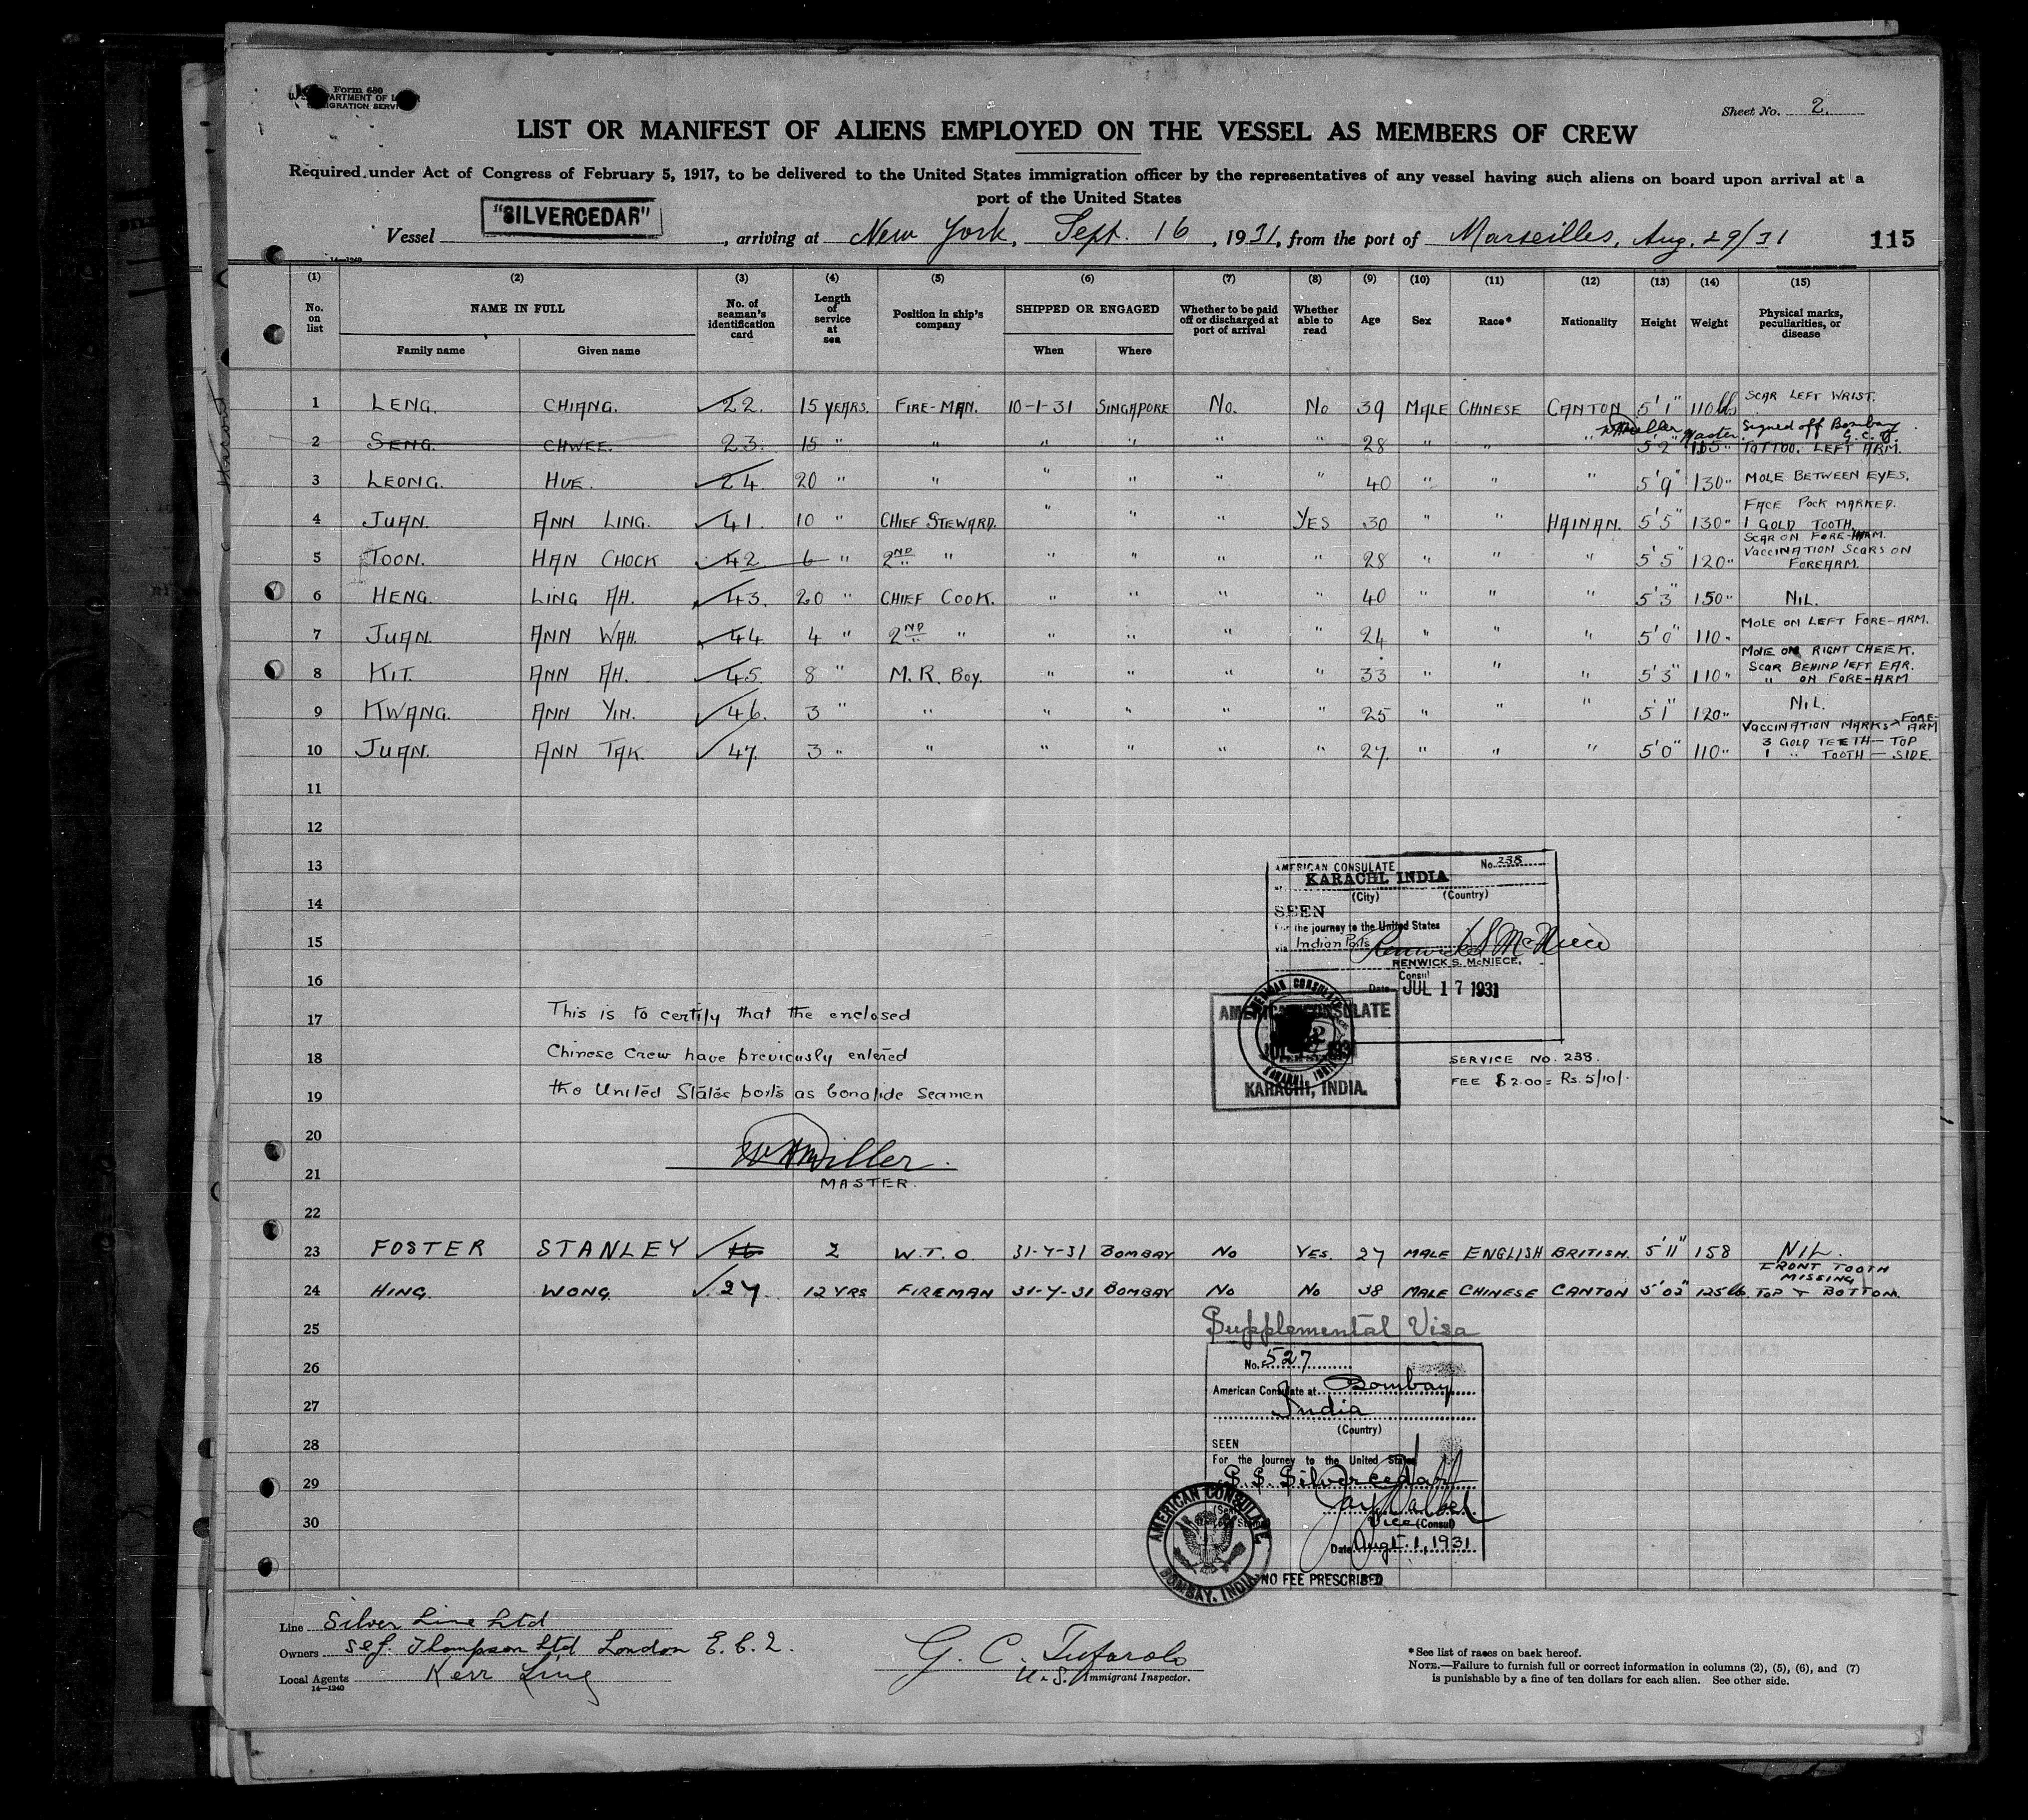 Form 680
DEPARTMENT OF LABOR
IMMIGRATION SERVICE
Sheet No. 2.
LIST OR MANIFEST OF ALIENS EMPLOYED ON THE VESSEL AS MEMBERS OF CREW
Required under Act of Congress of February 5, 1917, to be delivered to the United States immigration officer by the representatives of any vessel having such aliens on board upon arrival at a
port of the United States
Vessel "SILVERCEDAR", arriving at New York, Sept. 16, 1931, from the port of Marseilles, Aug. 29/31
115
14—1240
(1) (2) (3) (4) (5) (6) (7) (8) (9) (10) (11) (12) (13) (14) (15)
No. on list NAME IN FULL Family name Given name No. of seaman's identification card Length of service at sea Position in ship's company SHIPPED OR ENGAGED When Where Whether to be paid off or discharged at port of arrival Whether able to read Age Sex Race* Nationality Height Weight Physical marks, peculiarities, or disease
1 LENG. CHIANG. 22. 15 YEARS. FIRE-MAN. 10-1-31 SINGAPORE No. No 39 MALE CHINESE CANTON 5'1" 110 lbs SCAR LEFT WRIST.
WAMiller Master. Signed off Bombay G.C.T.
2 SENG. CHWEE. 23. 15 " " " " " " 28 " " 5'2" 115" TATTOO. LEFT ARM.
3 LEONG. HUE. 24. 20 " " " " " " 40 " " " 5'9" 130" MOLE BETWEEN EYES.
4 JUAN. ANN LING. 41. 10 " CHIEF STEWARD. " " " YES 30 " " HAINAN. 5'5" 130" FACE POCK MARKED. 1 GOLD TOOTH.
5 TOON. HAN CHOCK 42 6 " 2ND " " " " " 28 " " " 5'5" 120" SCAR ON FORE-ARM. VACCINATION SCARS ON FOREARM.
6 HENG. LING AH. 43. 20 " CHIEF COOK. " " " " 40 " " " 5'3" 150" NIL.
7 JUAN. ANN WAH. 44. 4 " 2ND " " " " " 24 " " " 5'0" 110" MOLE ON LEFT FORE-ARM.
8 KIT. ANN AH. 45. 8 " M.R. BOY. " " " " 33 " " " 5'3" 110" MOLE ON RIGHT CHEEK. SCAR BEHIND LEFT EAR. " ON FORE-ARM
9 KWANG. ANN YIN. 46. 3 " " " " " " 25 " " " 5'1" 120" NIL.
10 JUAN. ANN TAK. 47. 3 " " " " " " 27. " " " 5'0" 110" VACCINATION MARKS FORE-ARM 3 GOLD TEETH — TOP 1 " TOOTH — SIDE.
11
12
13
14
15
16
17
18
19
20
21
22
AMERICAN CONSULATE No. 238
KARACHI, INDIA
(City) (Country)
SEEN
For the journey to the United States
via Indian Ports Renwick S McNiece
RENWICK S. McNIECE,
Consul
Date JUL 17 1931
AMERICAN CONSULATE
KARACHI, INDIA.
AMERICAN CONSULATE
KARACHI, INDIA
SERVICE NO. 238.
FEE $2.00 = Rs. 5/10/-
This is to certify that the enclosed
Chinese Crew have previously entered
the United States ports as bonafide seamen
WAMiller.
MASTER.
23 FOSTER STANLEY 16 2 W.T.O. 31-7-31 BOMBAY NO YES. 27 MALE ENGLISH BRITISH. 5'11" 158 NIL.
24 HING. WONG 27. 12 YRS FIREMAN 31-7-31 BOMBAY NO NO 38 MALE CHINESE CANTON 5'02" 125 lb. FRONT TOOTH MISSING TOP & BOTTOM.
25
26
27
28
29
30
Supplemental Visa
No. 527
American Consulate at Bombay
India
(Country)
SEEN
For the journey to the United States
S.S. Silvercedar
Vice (Consul)
Date Augt. 1, 1931
NO FEE PRESCRIBED
AMERICAN CONSULATE,
BOMBAY, INDIA
Line Silver Line Ltd
Owners S & J. Thompson Ltd London E.C.2.
Local Agents Kerr Line
14—1240
G. C. Tufarolo
U.S. Immigrant Inspector.
*See list of races on back hereof.
NOTE.—Failure to furnish full or correct information in columns (2), (5), (6), and (7)
is punishable by a fine of ten dollars for each alien. See other side.